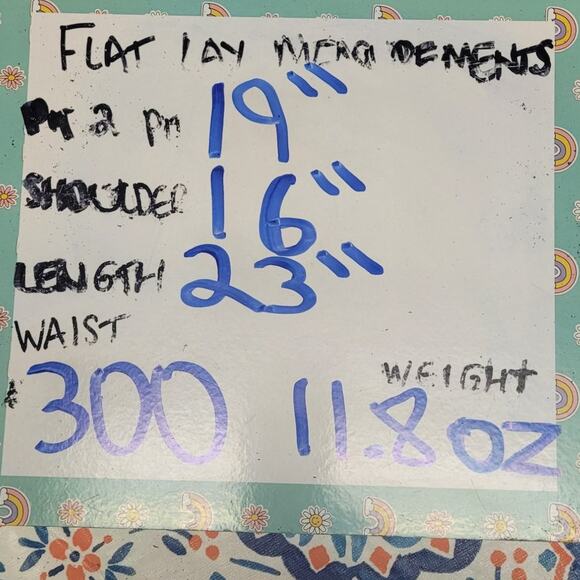 FLAT LAY MEASUREMENTS
Pit 2 Pit 19"
SHOULDER 16"
LENGTH 23"
WAIST
WEIGHT
# 300 11.8 OZ